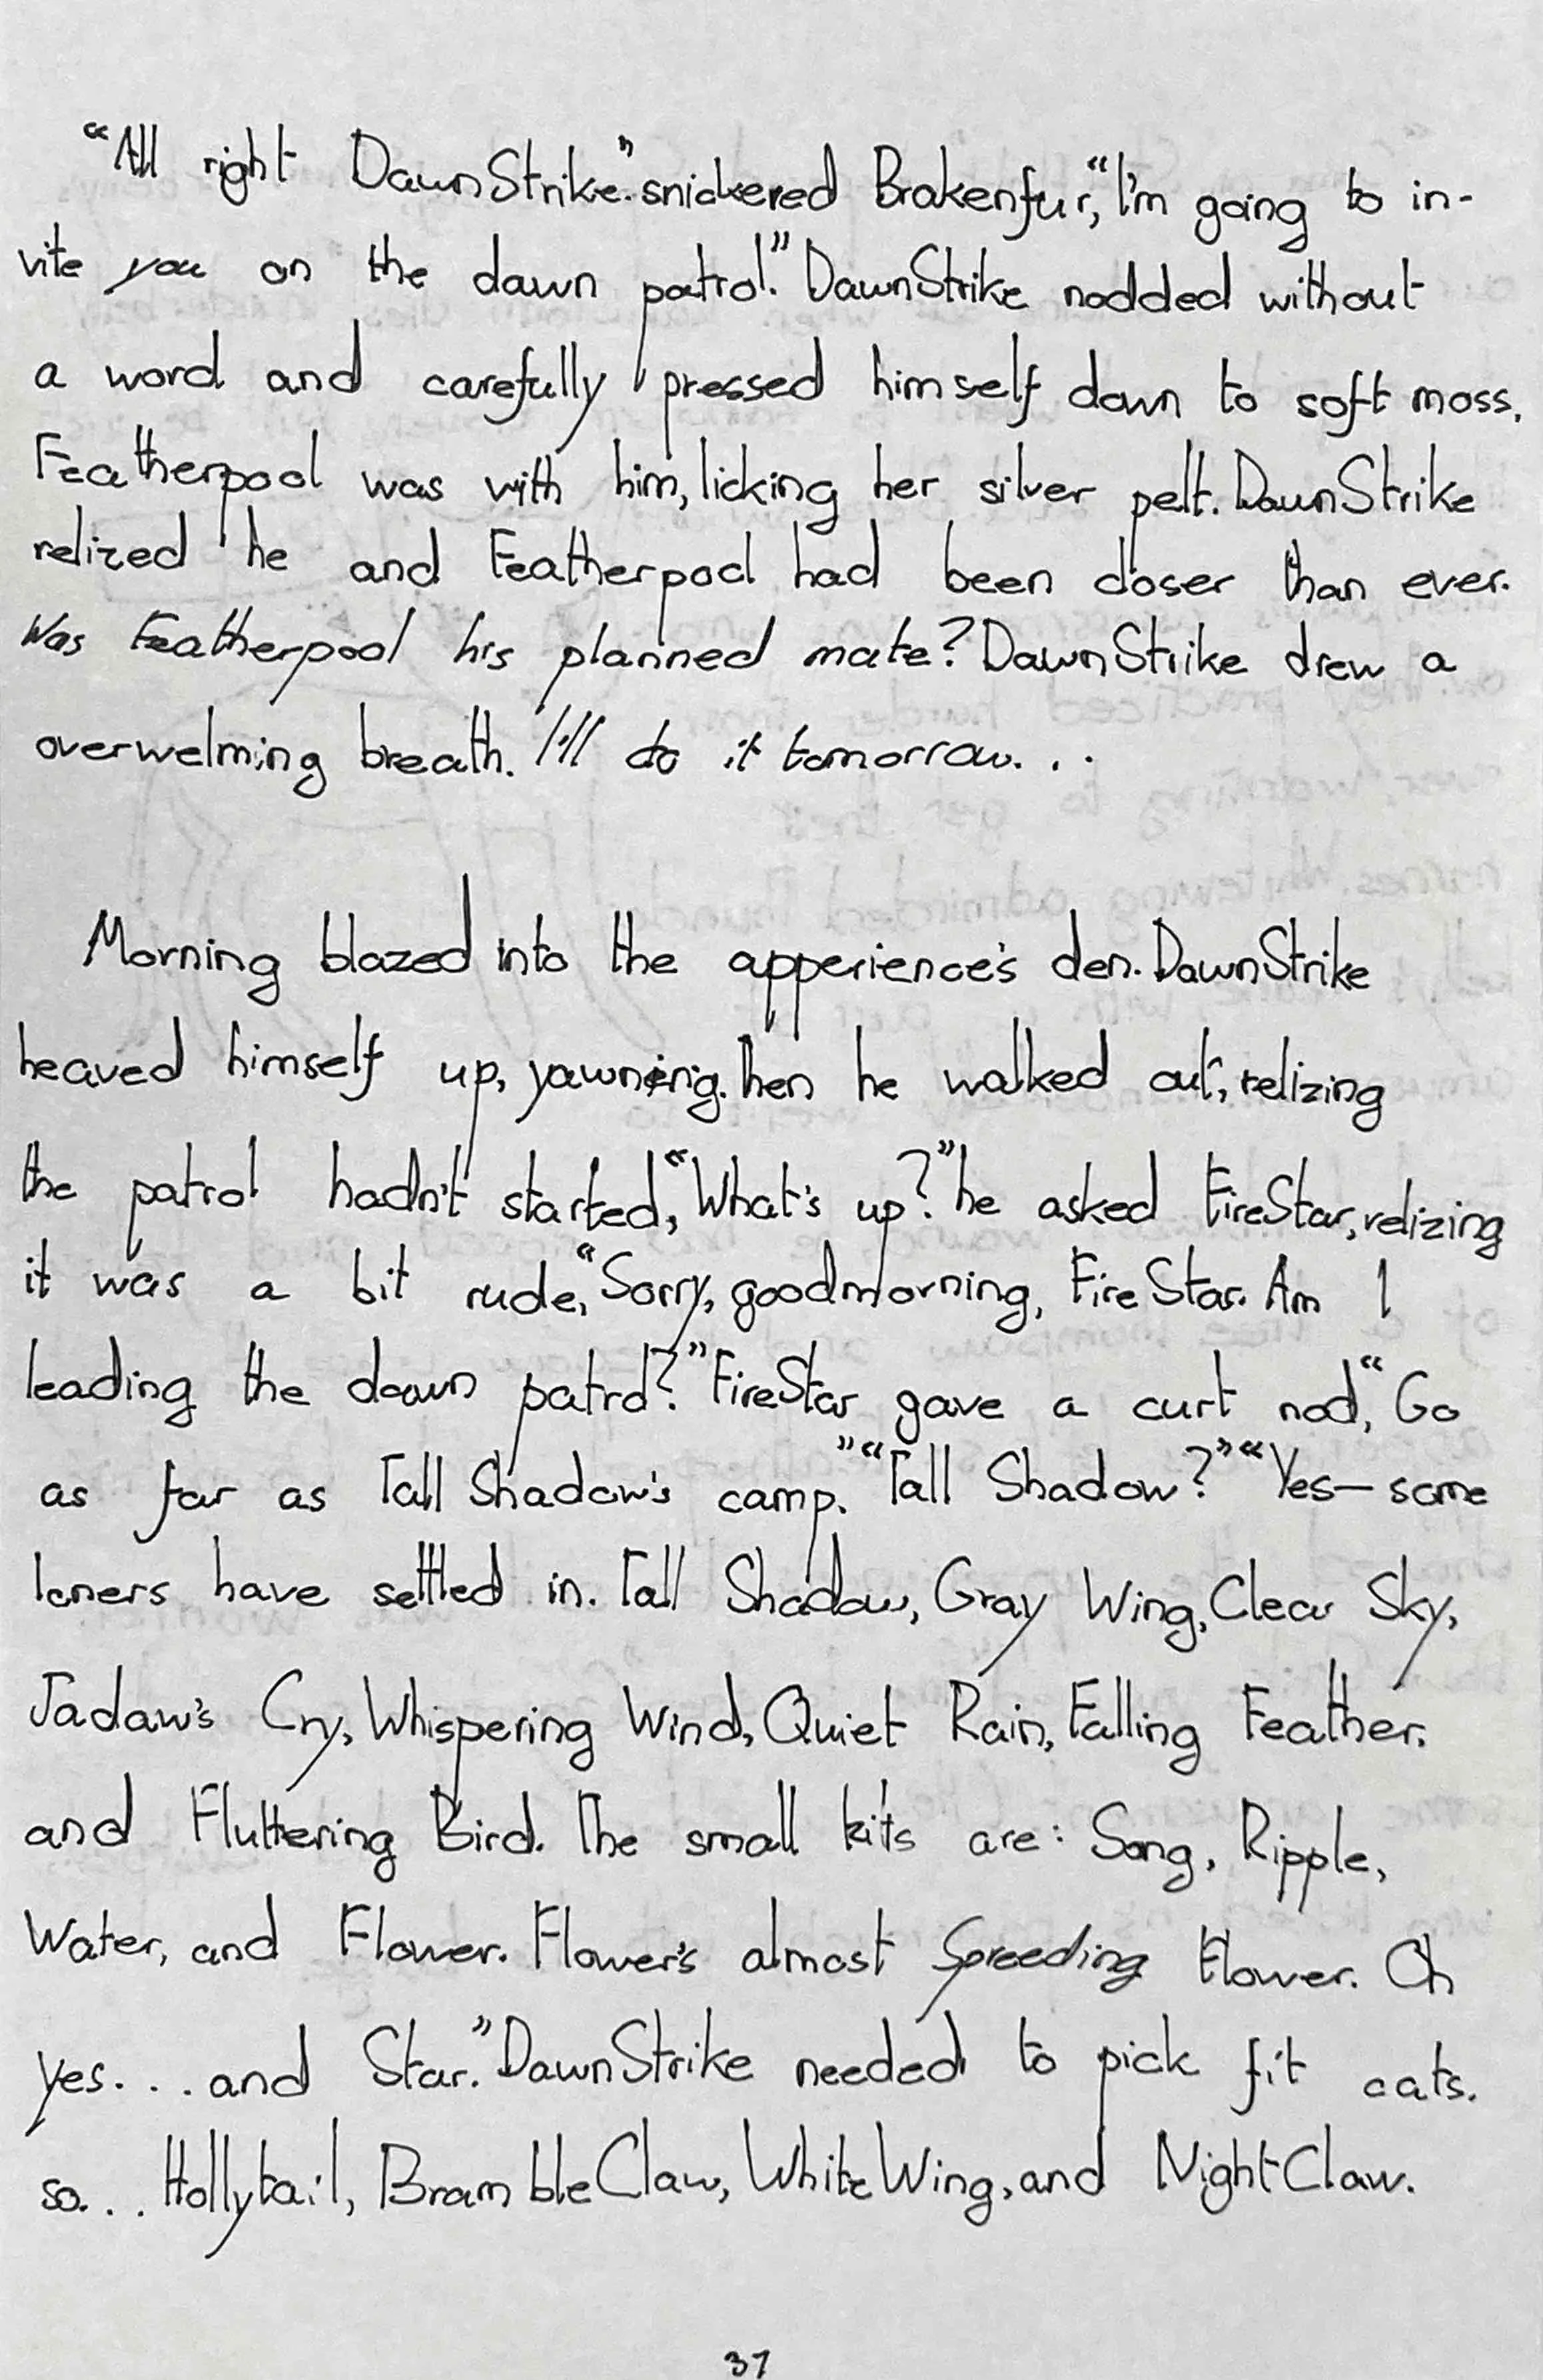 “All right DawnStrike.” snickered Brakenfur, “I’m going to in-
vite you on the dawn patrol.” DawnStrike nodded without
a word and carefully pressed himself down to soft moss.
Featherpool was with him, licking her silver pelt. DawnStrike
relized he and Featherpool had been closer than ever.
Was Featherpool his planned mate? DawnStrike drew a
overwelming breath. I’ll do it tomorrow...
Morning blazed into the apperience’s den. DawnStrike
heaved himself up, yawning. Then he walked out, relizing
the patrol hadn’t started, “What’s up?” he asked FireStar, relizing
it was a bit rude, “Sorry, goodmorning, FireStar. Am I
leading the dawn patrol?” FireStar gave a curt nod, “Go
as far as Tall Shadow’s camp.” “Tall Shadow?” “Yes— some
loners have settled in. Tall Shadow, Gray Wing, Clear Sky,
Jadaw’s Cry, Whispering Wind, Quiet Rain, Falling Feather.
and Fluttering Bird. The small kits are: Song, Ripple,
Water, and Flower. Flower’s almost Spreeding Flower. Oh
yes... and Star.” DawnStrike needed to pick fit cats.
so... Hollytail, BrambleClaw, WhiteWing, and NightClaw.
37